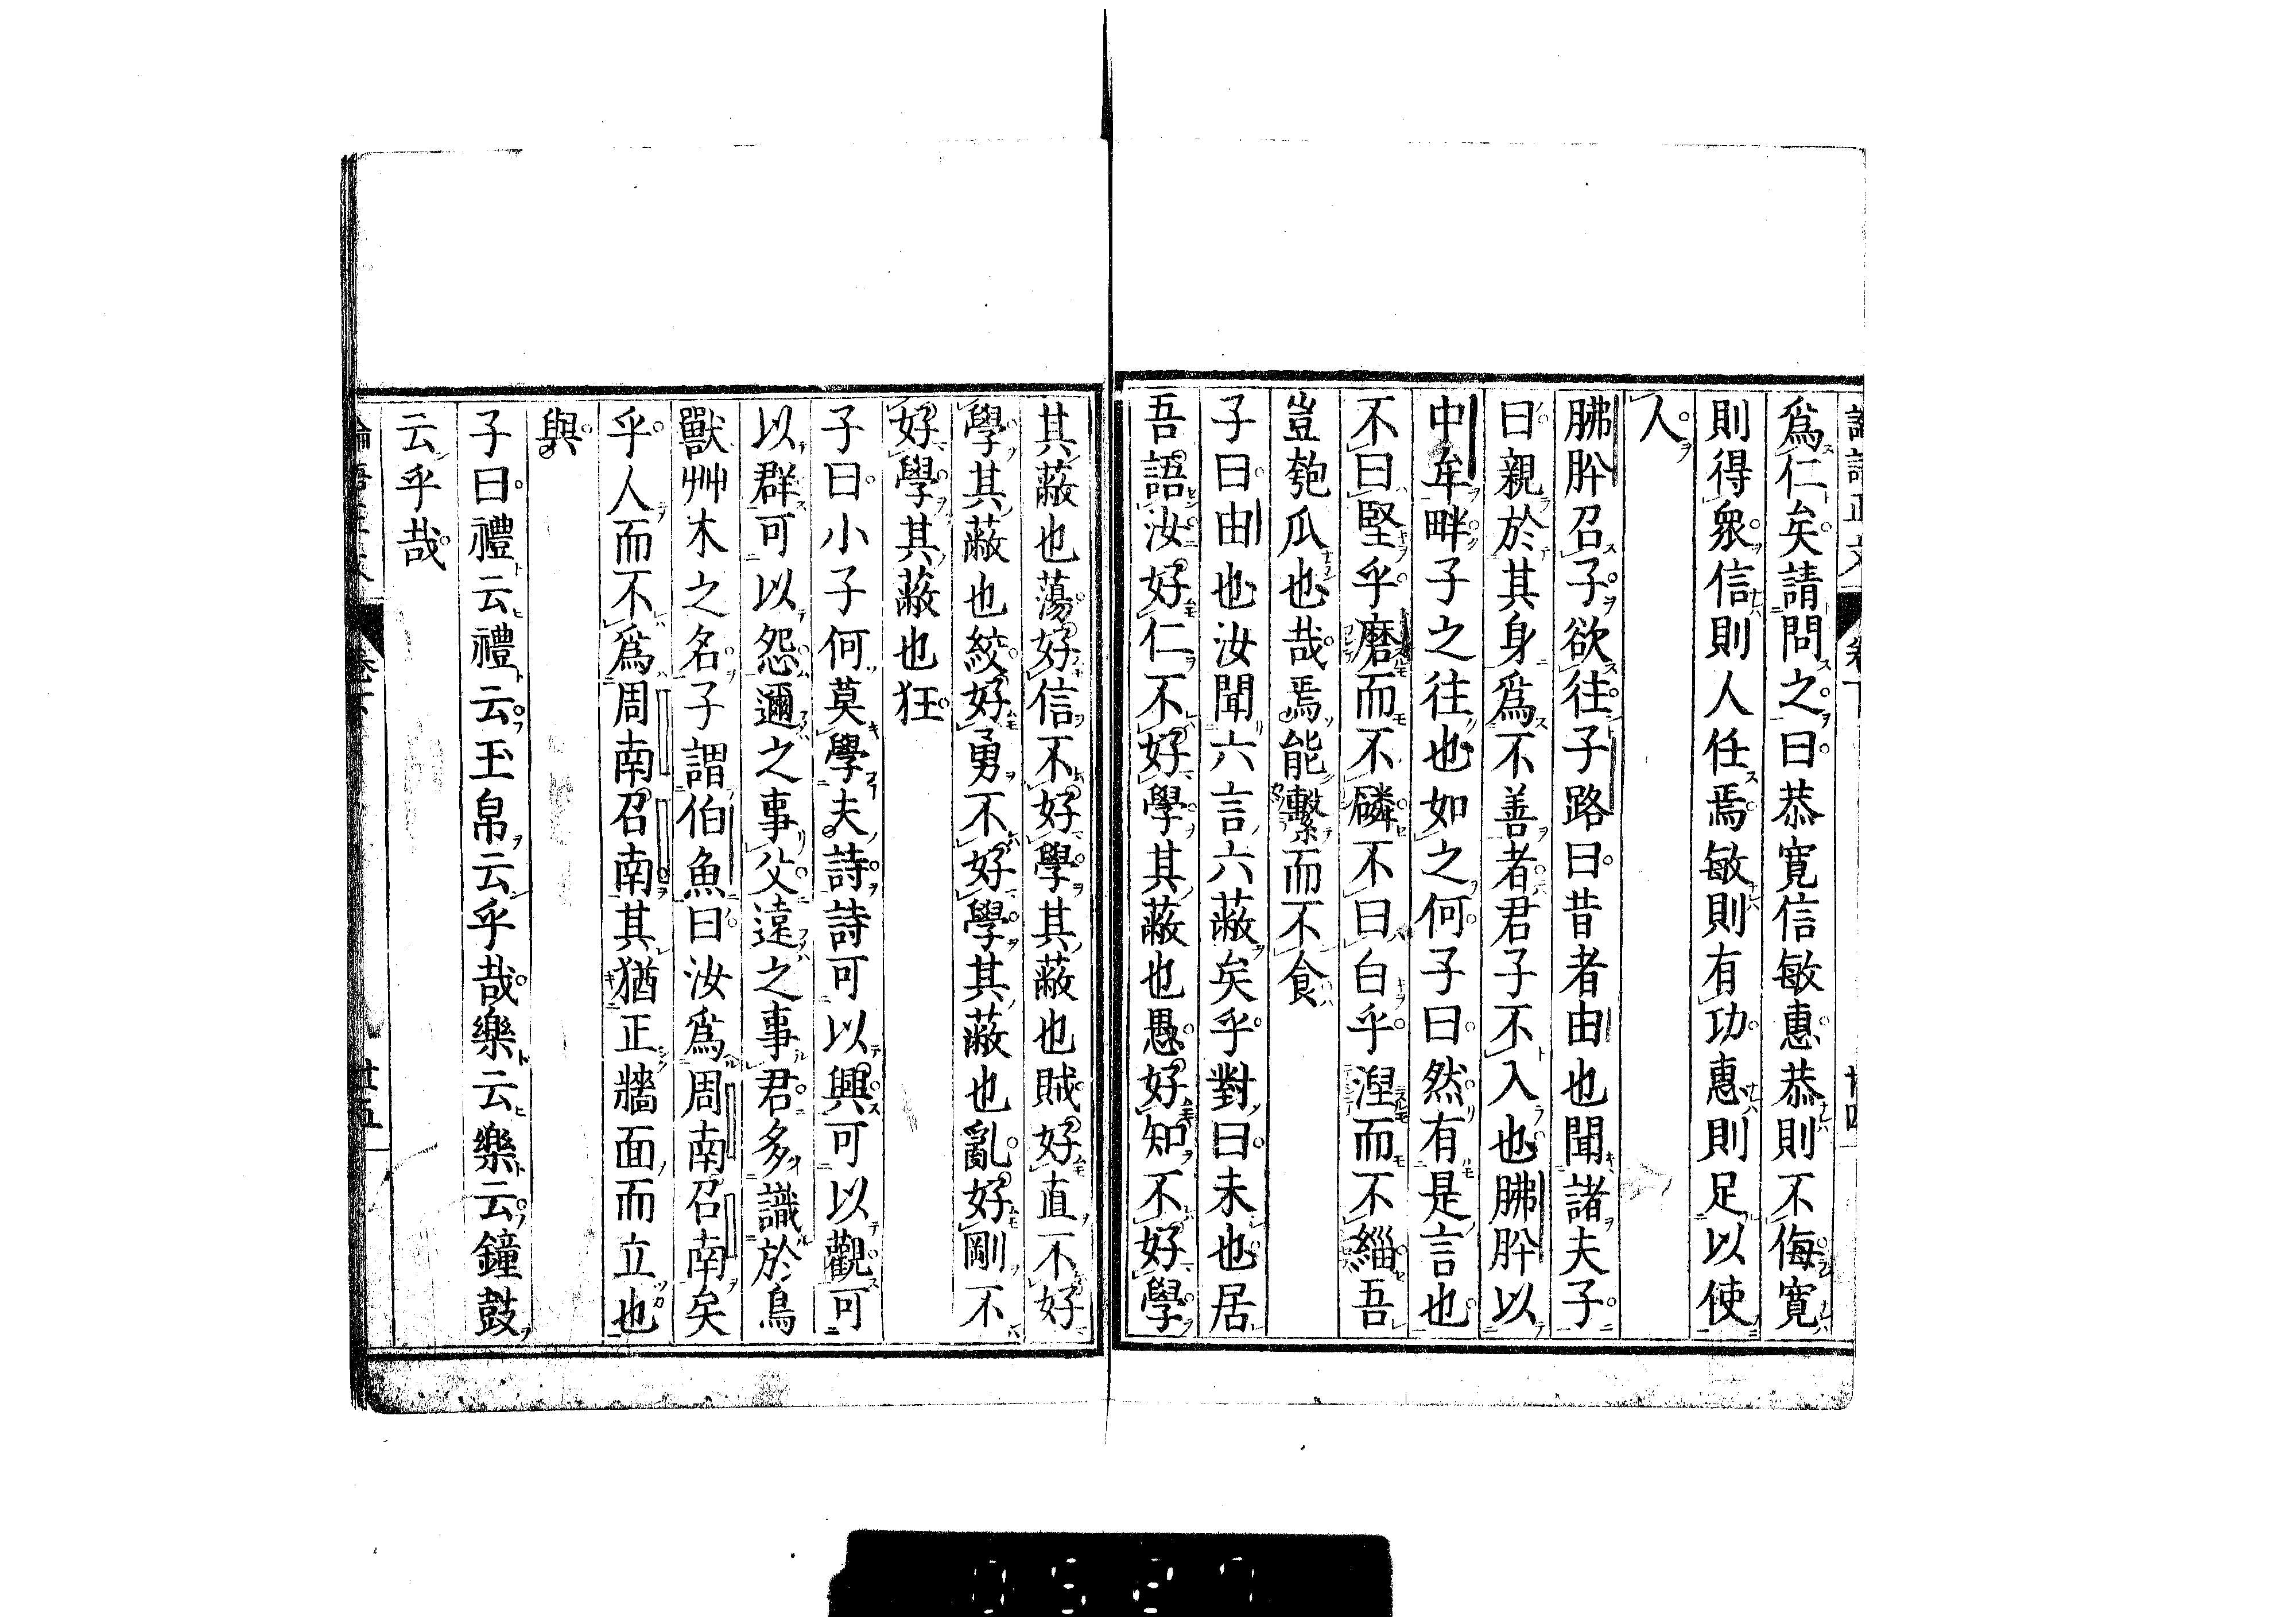 爲仁矣請問之曰恭寬信敏惠恭則不侮寬
則得衆信則人任焉敏則有功惠則足以使
人
胇肸召子欲往子路曰昔者由也聞諸夫子
曰親於其身爲不善者君子不入也胇肸以
中牟畔子之往也如之何子曰然有是言也
不曰堅乎磨而不磷不曰白乎涅而不緇吾
豈匏瓜也哉焉能繫而不食
子曰由也汝聞六言六蔽矣乎對曰未也居
吾語汝好仁不好學其蔽也愚好知不好學
其蔽也蕩好信不好學其蔽也賊好直不好
學其蔽也絞好勇不好學其蔽也亂好剛不
好學其蔽也狂
子曰小子何莫學夫詩詩可以興可以觀可
以群可以怨邇之事父遠之事君多識於鳥
獸艸木之名子謂伯魚曰汝爲周南召南矣
乎人而不爲周南召南其猶正牆面而立也
與
子曰禮云禮云玉帛云乎哉樂云樂云鐘鼓
云乎哉